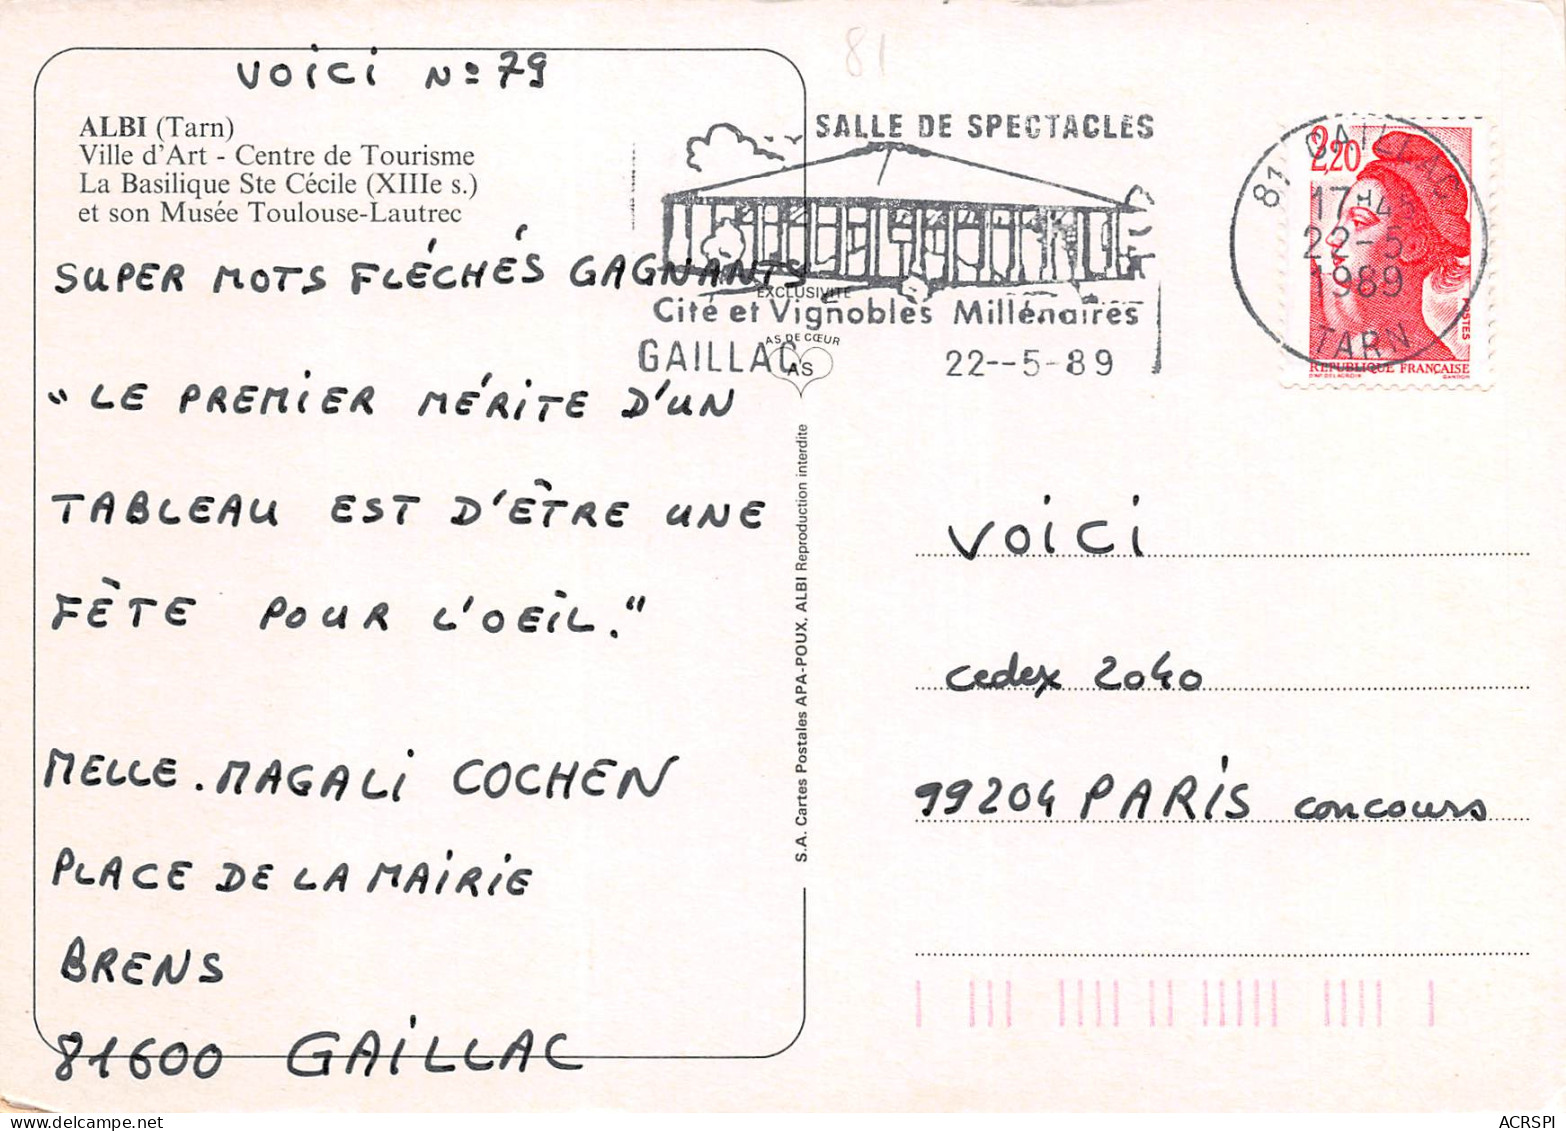 VOICI Nº 79
ALBI (Tarn)
Ville d'Art - Centre de Tourisme
La Basilique Ste Cécile (XIIIe s.)
et son Musée Toulouse-Lautrec
SUPER MOTS FLÉCHÉS GAGNANTS
"LE PREMIER MÉRITE D'UN
TABLEAU EST D'ÊTRE UNE
FÊTE POUR L'OEIL."
MELLE. MAGALI COCHEN
PLACE DE LA MAIRIE
BRENS
81600 GAILLAC
81
SALLE DE SPECTACLES
Cité et Vignobles Millénaires
GAILLAC 22--5-89
EXCLUSIVITÉ
AS DE CŒUR
AS
S.A. Cartes Postales APA-POUX, ALBI Reproduction interdite
81 GAILLAC
17H45
22-5
1989
TARN
2,20
POSTES
RÉPUBLIQUE FRANÇAISE
D'AP. DELACROIX GANDON
VOICI
cedex 2040
99204 PARIS concours
ACRSPI